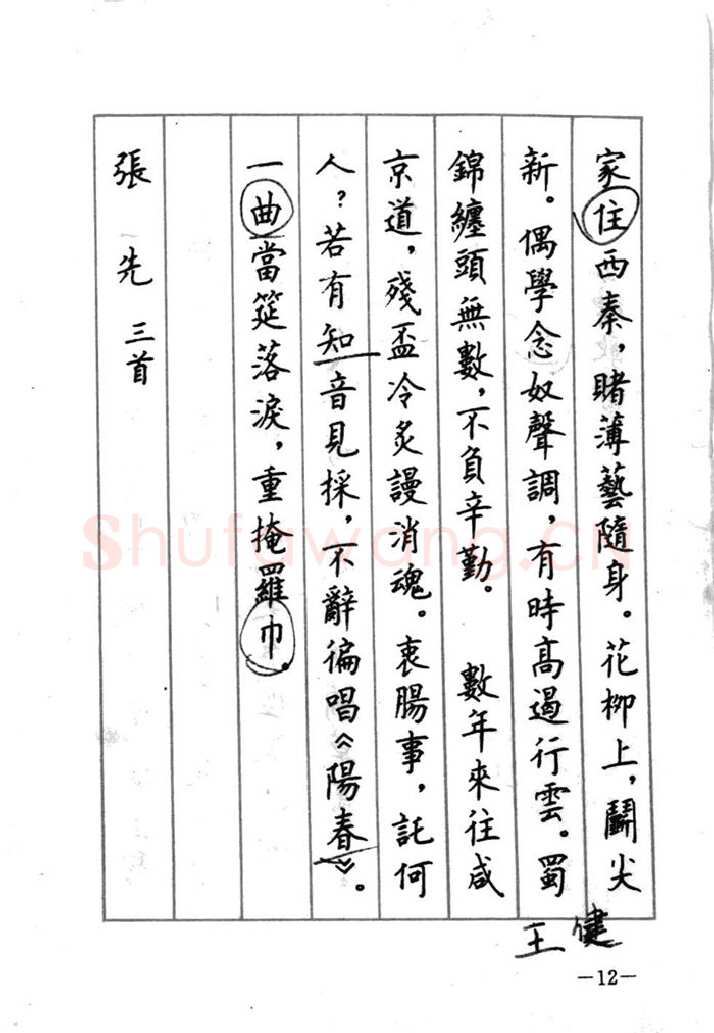 家住西秦，賭薄藝隨身。花柳上，鬭尖
新。偶學念奴聲調，有時高遏行雲。蜀
錦纏頭無數，不負辛勤。 數年來往咸
京道，殘盃冷炙謾消魂。衷腸事，託何
人？若有知音見採，不辭徧唱《陽春》。
一曲當筵落淚，重掩羅巾。
張先 三首
王健
—12—
Shufawang.CN